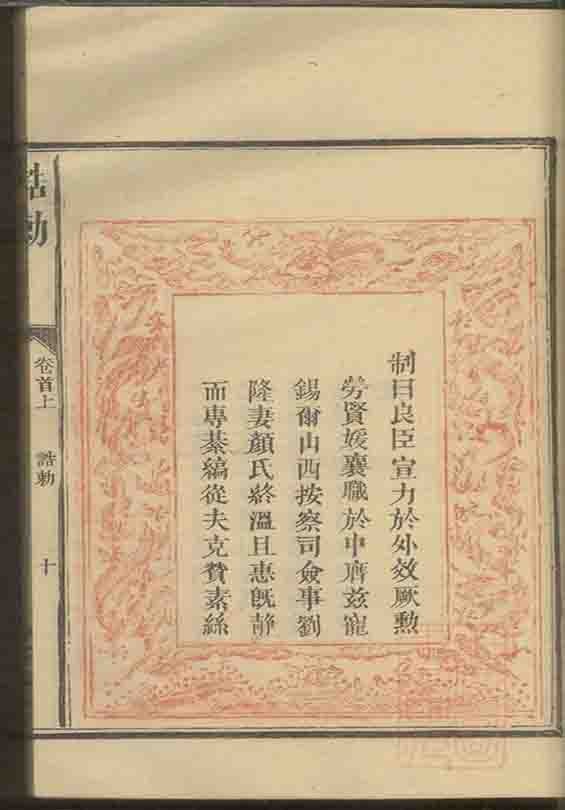 制曰良臣宣力於外效厥勲
勞賢媛襄職於中膺茲寵
錫爾山西按察司僉事劉
隆妻顏氏終溫且惠旣靜
而專綦縞從夫克賛素絲
誥勅
卷首上
誥勅
十